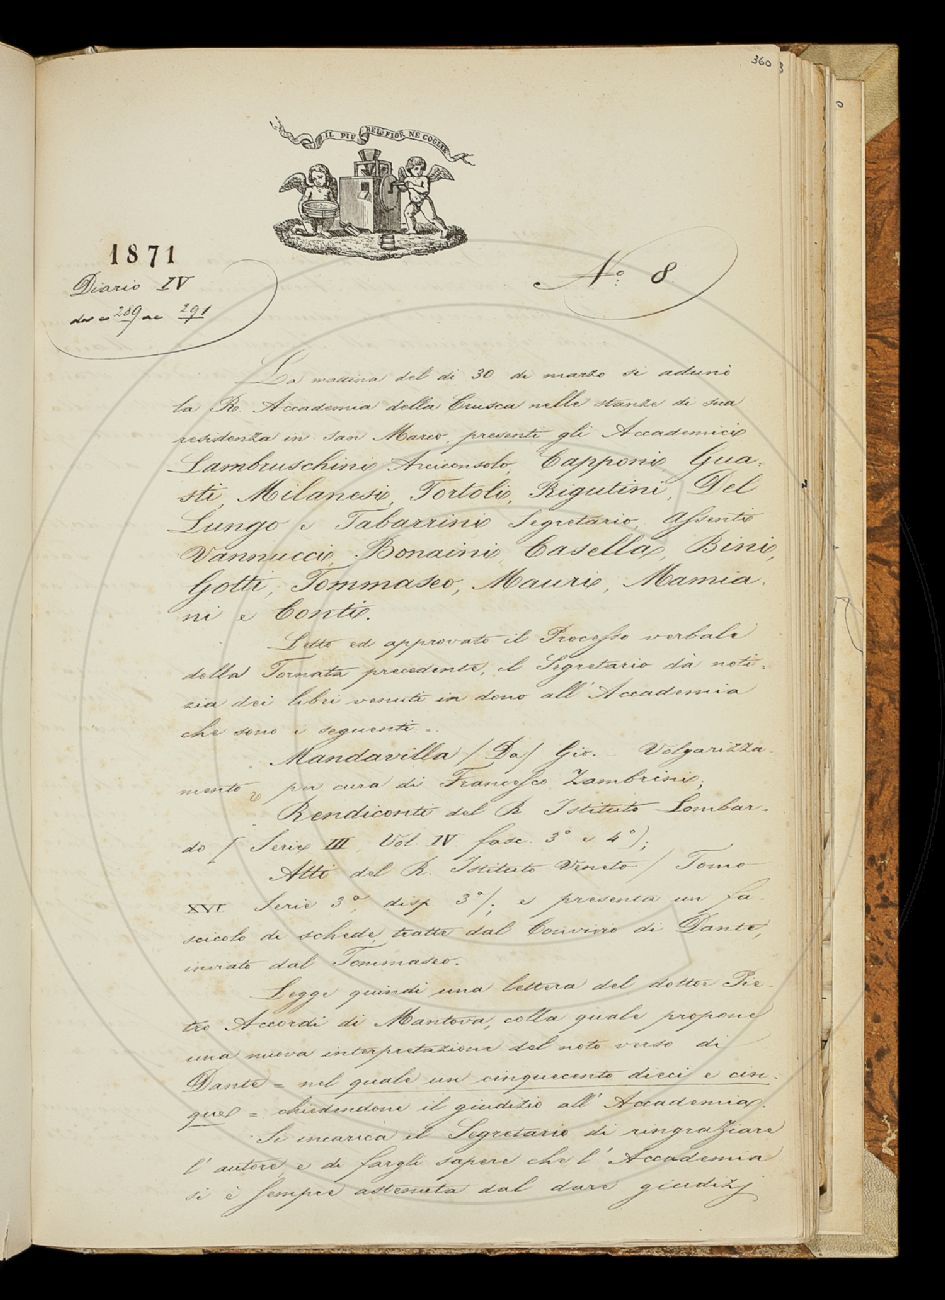 360
IL PIÙ BEL FIOR NE COGLIE
1871
Diario IV
da c. 289 a c. 291
N.º 8
La mattina del dì 30 di marzo si adunò
la R. Accademia della Crusca nelle stanze di sua
residenza in San Marco, presenti gli Accademici
Lambruschini Arciconsolo, Capponi, Gua-
sti Milanesi, Tortoli, Rigutini, Del
Lungo e Tabarrini Segretario. Assenti
Vannucci, Bonaini, Casella, Bini,
Gotti, Tommaseo, Mauri, Mamia-
ni e Conti.
Letto ed approvato il Processo verbale
della Tornata precedente, il Segretario dà noti-
zia dei libri venuti in dono all'Accademia
che sono i seguenti:
Mandavilla (Da) Gio. - Volgarizza-
mento per cura di Francesco Zambrini;
Rendiconti del R. Istituto Lombar-
do (Serie III Vol. IV fasc. 3º e 4º);
Atti del R. Istituto Veneto (Tomo
XVI Serie 3ª, disp. 3ª); e presenta un fa-
scicolo di schede tratte dal Convivio di Dante,
inviato dal Tommaseo.
Legge quindi una lettera del dottor Pie-
tro Accordi di Mantova, colla quale propone
una nuova interpretazione del noto verso di
Dante = nel quale un cinquecento dieci e cin-
que = chiedendone il giudizio all'Accademia.
Si incarica il Segretario di ringraziare
l'autore e di fargli sapere che l'Accademia
si è sempre astenuta dal dare giudizj